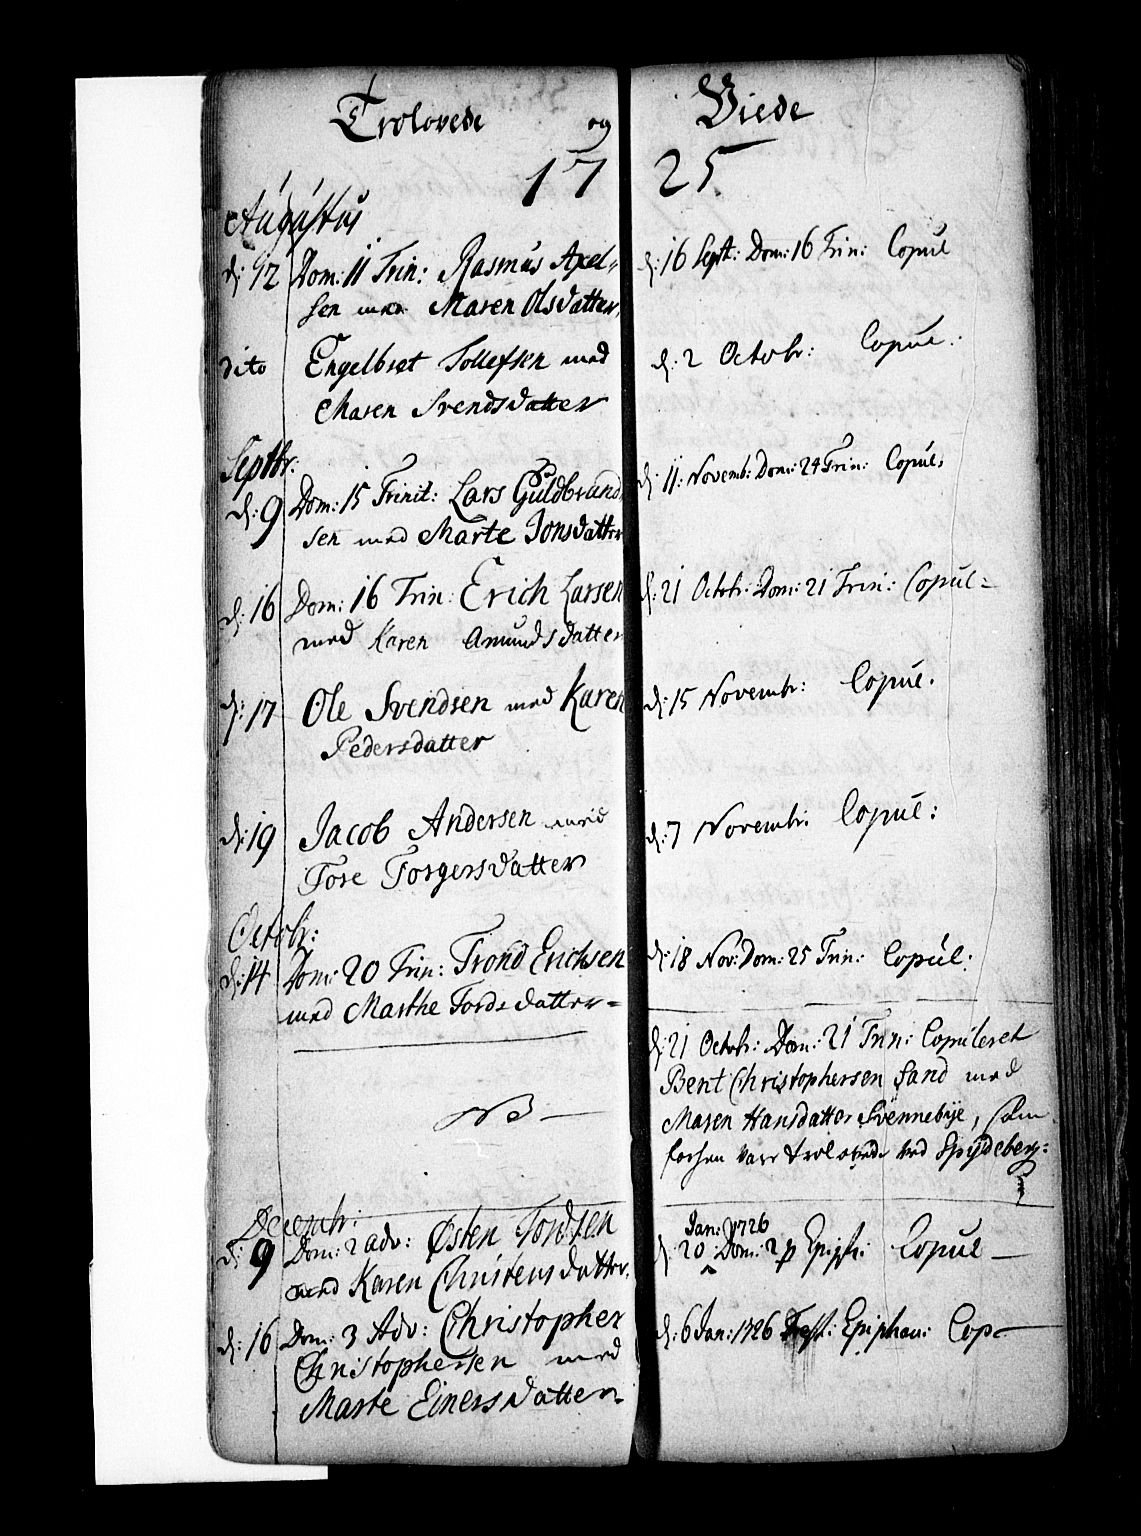 Trolovede og Viede
17 25
Augustus
d: 12 Dom: 11 Trin: Rasmus Axel= d: 16 Sept: Dom: 16 Trin: Copul
sen med Maren Olsdatter,
dito Engelbret Tollefsen med d: 2 Octobr: Copul.
Maren Svendsdatter
Septbr:
d: 9 Dom: 15 Trinit: Lars Guldbrand d: 11: Novemb: Dom: 24 Trin: Copul:
sen med Marte Jonsdatter
d: 16 Dom: 16 Trin: Erich Larsen d: 21 Octobr: Dom: 21 Trin: Copul=
med Karen Amundsdatter
d: 17 Ole Svendsen med Karen d: 15 Novembr: Copul.
Pedersdatter
d: 19 Jacob Andersen med d: 7 Novembr: Copul:
Tore Torgersdatter
Octobr:
d: 14 Dom: 20 Trin: Trond Erichsen d: 18 Nov: Dom: 25 Trin: Copul:
med Marthe Tordsdatter=
d: 21 Octobr: Dom: 21 Trin: Copuleret
Bent Christophersen Sand med
NB Maren Hansdatter Svennebye, som
forhen vare trolovede ved Spydeberg:
Decembr:
Jan: 1726
d: 9 Dom: 2 adv: Østen Tordsen d: 20 Dom: 2 p Epiph: Copul
med Karen Christensdatter.
d: 16 Dom: 3 Adv: Christopher d: 6 Jan: 1726 Fest: Epiphan: Cop
Christophersen med
Marte Einersdatter